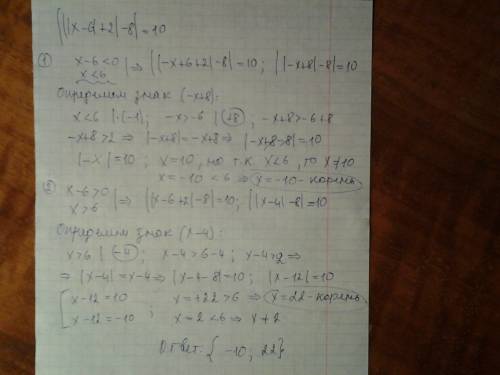 |||x-6|+2|-8|=10
① x-6<0 | ⇒ ||-x+6+2|-8|=10; ||-x+8|-8|=10
x<6
Определим знак (-x+8):
x<6 |·(-1); -x>-6 |+8; -x+8>-6+8
-x+8>2 ⇒ |-x+8|=-x+8 ⇒ |-x+8-8|=10
|-x|=10; x=10, но т.к. x<6, то x≠10
x=-10<6 ⇒ x=-10-корень
② x-6>0 | ⇒ ||x-6+2|-8|=10; ||x-4|-8|=10
x>6
Определим знак (x-4):
x>6 |-4; x-4>6-4; x-4>2 ⇒
⇒ |x-4|=x-4 ⇒ |x-4-8|=10; |x-12|=10
[ x-12=10 ; x=+22>6 ⇒ x=22-корень
x-12=-10 x=2<6 ⇒ x≠2
Ответ: {-10; 22}